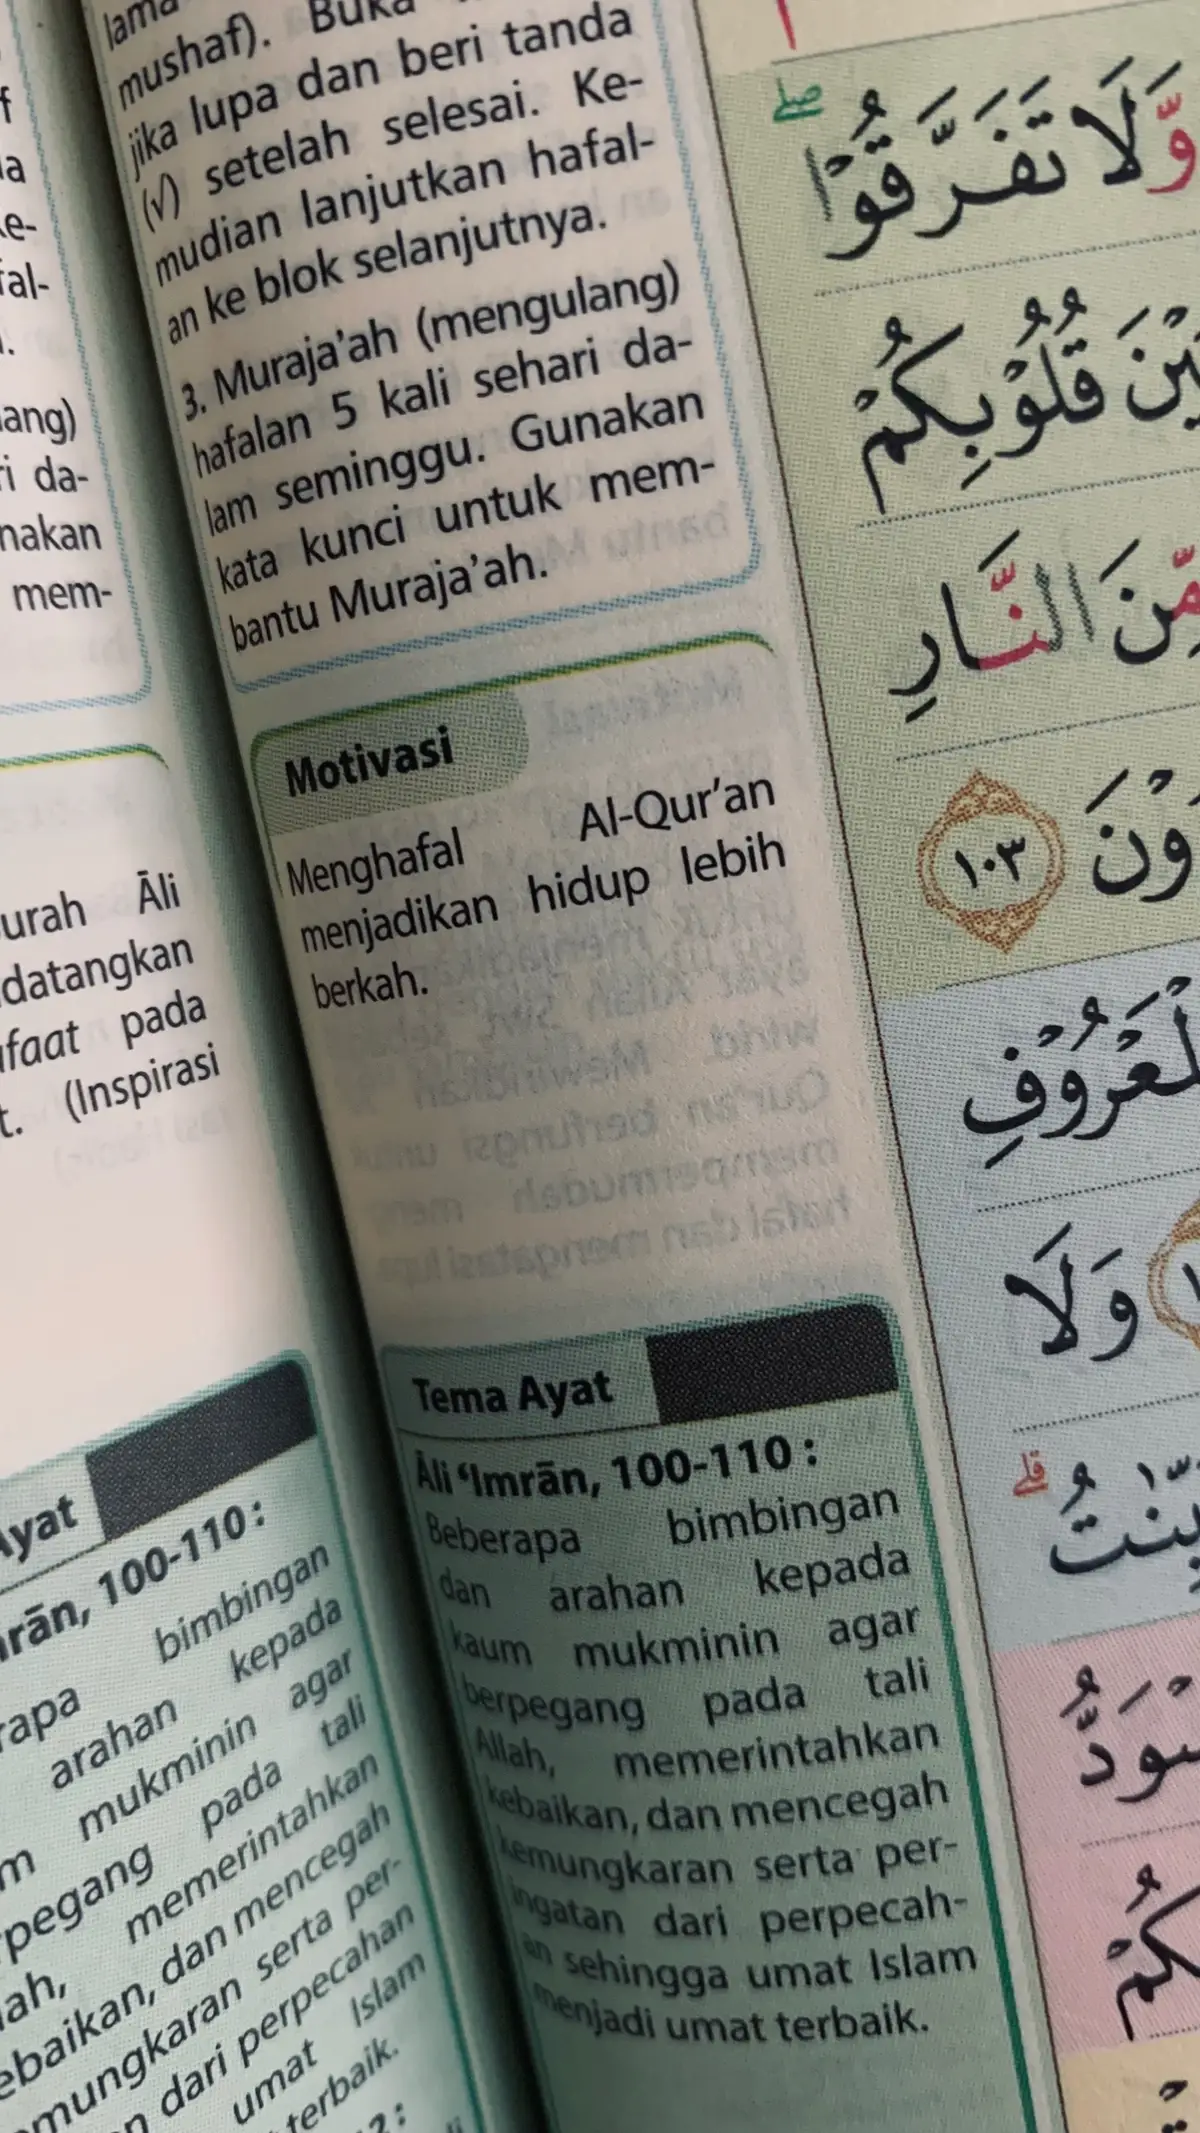 lama
mushaf). Buka
jika lupa dan beri tanda
(√) setelah selesai. Ke-
mudian lanjutkan hafal-
an ke blok selanjutnya.
3. Muraja’ah (mengulang)
hafalan 5 kali sehari da-
lam seminggu. Gunakan
kata kunci untuk mem-
bantu Muraja’ah.
Motivasi
Menghafal Al-Qur’an
menjadikan hidup lebih
berkah.
Tema Ayat
Āli ‘Imrān, 100-110 :
Beberapa bimbingan
dan arahan kepada
kaum mukminin agar
berpegang pada tali
Allah, memerintahkan
kebaikan, dan mencegah
kemungkaran serta per-
ingatan dari perpecah-
an sehingga umat Islam
menjadi umat terbaik.
ang)
ri da-
nakan
mem-
urah Āli
datangkan
faat pada
t. (Inspirasi
Ayat
rān, 100-110 :
rapa bimbingan
arahan kepada
m mukminin agar
rpegang pada tali
lah, memerintahkan
ebaikan, dan mencegah
mungkaran serta per-
n dari perpecahan
umat Islam
terbaik.
وَّلَا تَفَرَّقُوْا ۖ
قُلُوْبِكُمْ
مِّنَ النَّارِ
وْنَ ١٠٣
لْمَعْرُوْفِ
وَلَا
كُمْ